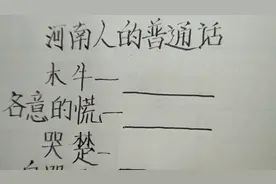 河南人的普通话
木牛—
各意的慌—
哭楚—